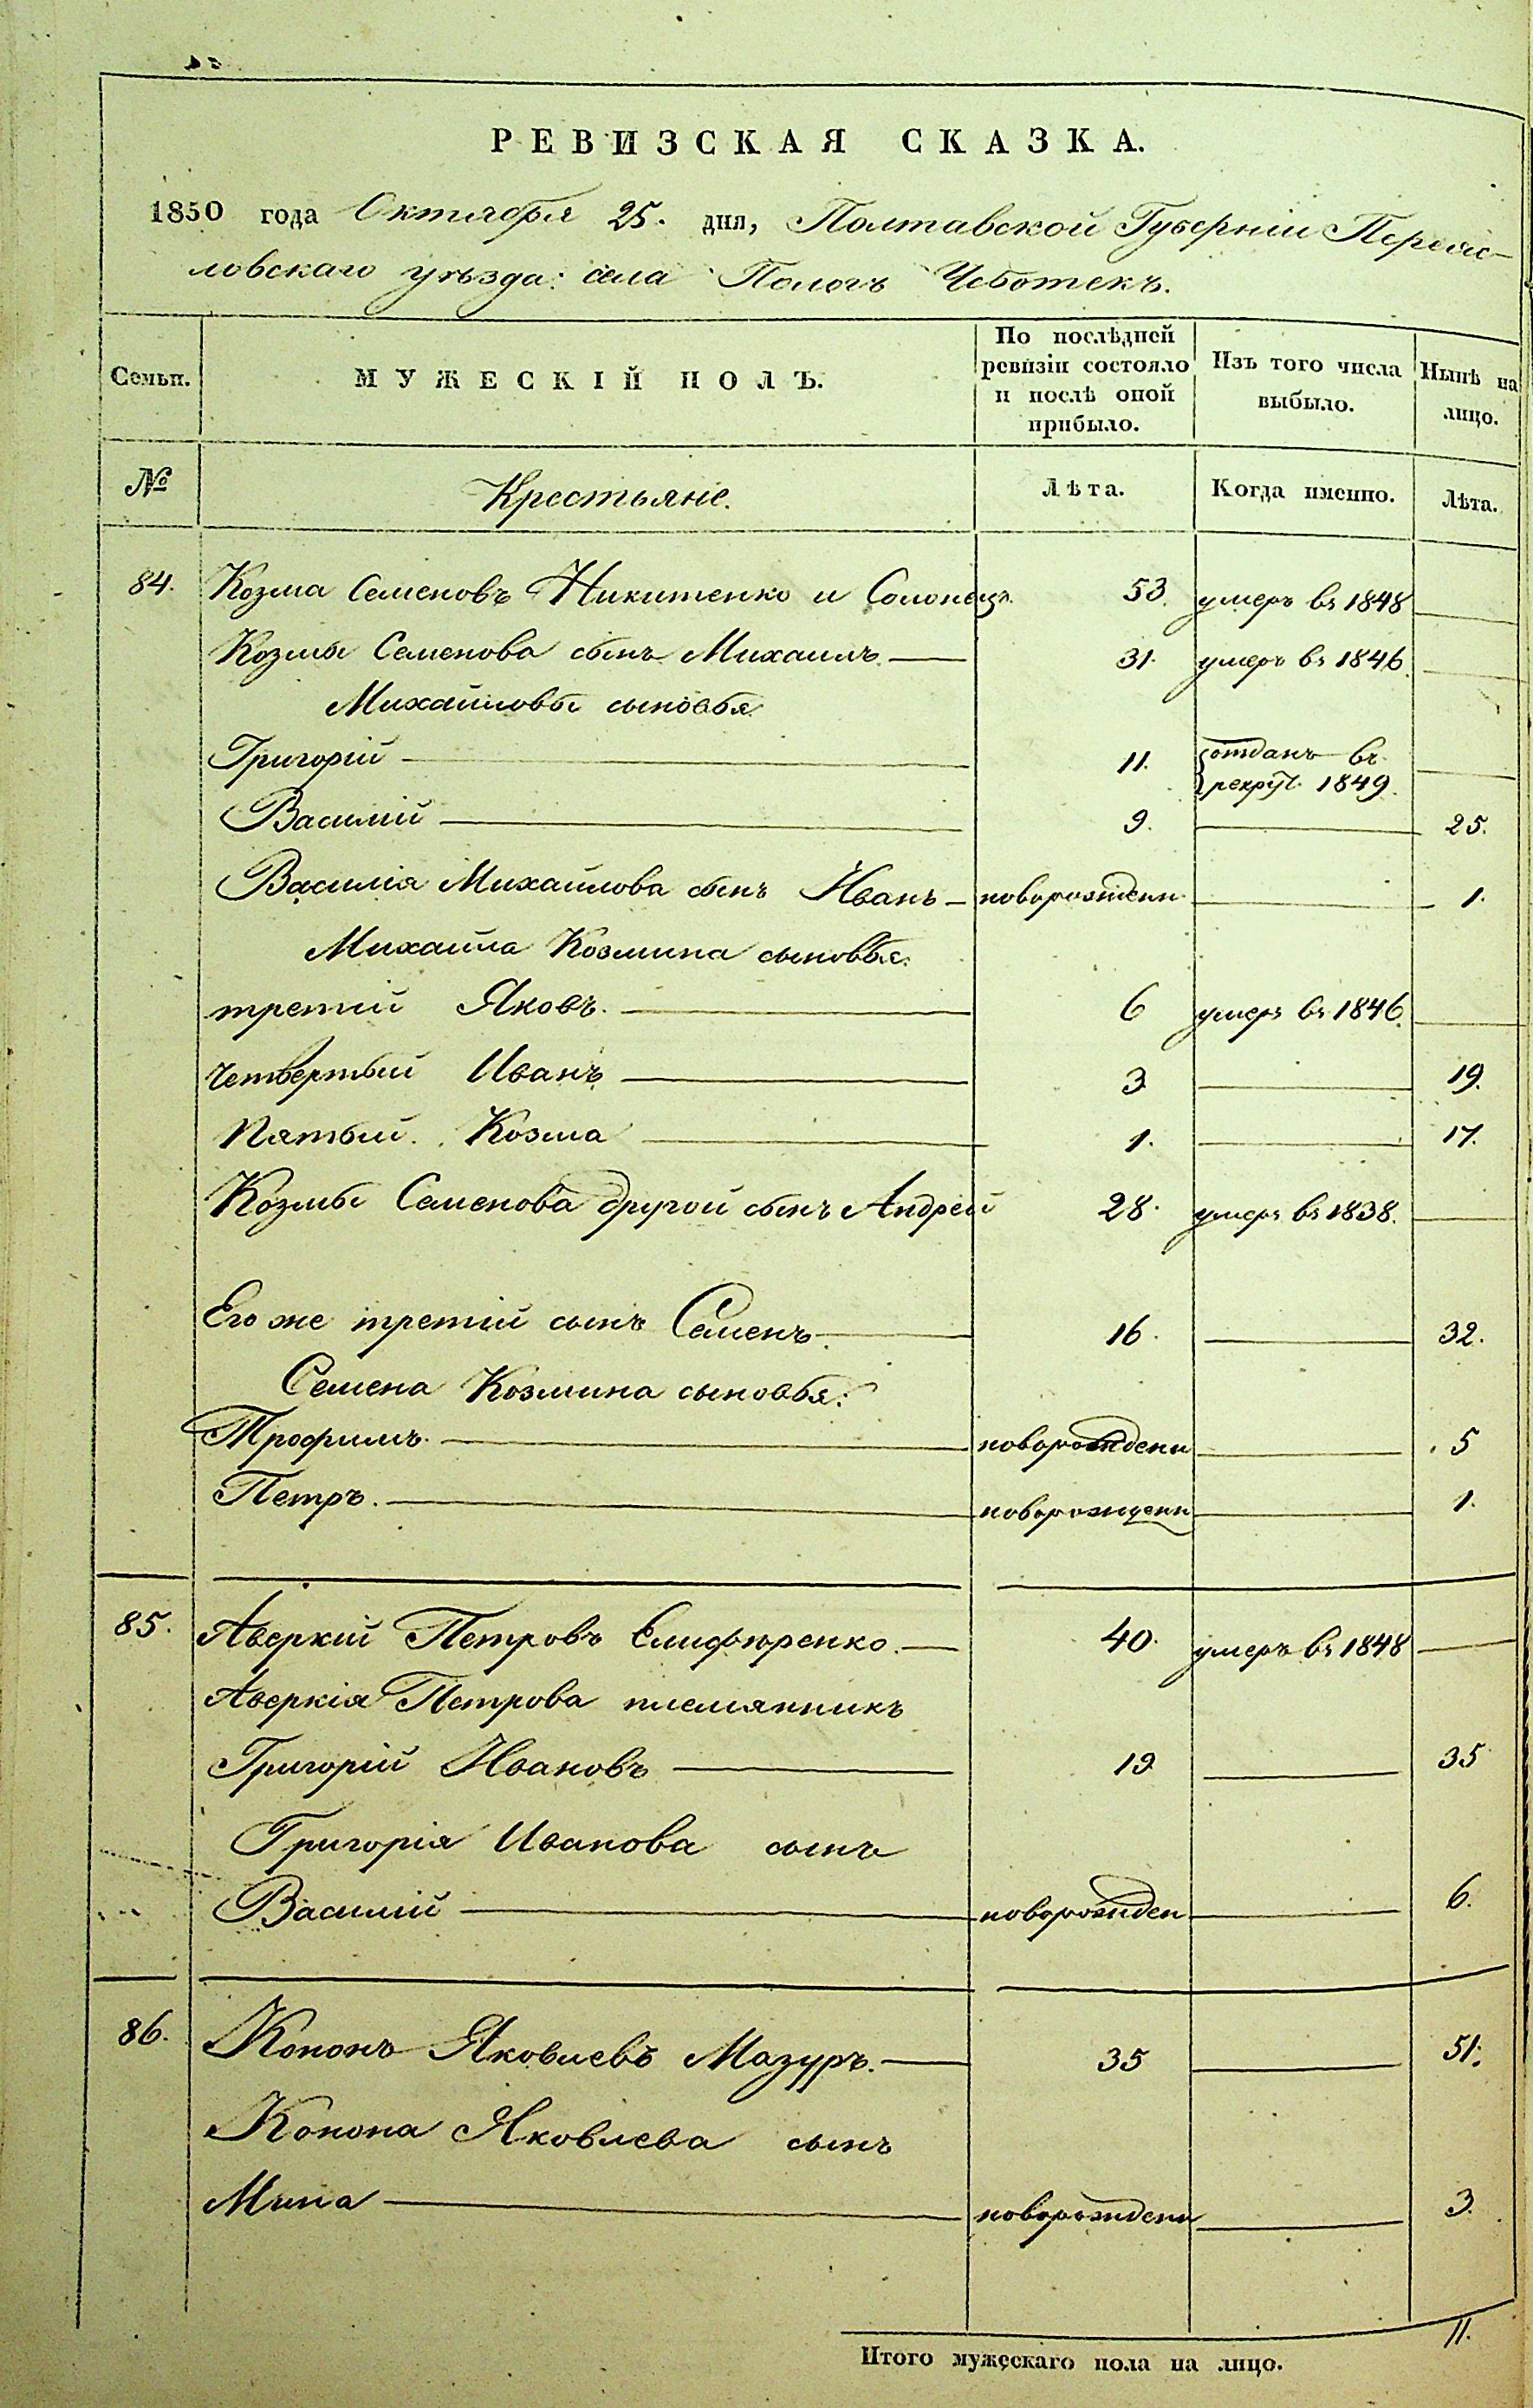 РЕВИЗСКАЯ СКАЗКА.
1850 года Октября 25. дня, Полтавской Губерніи Переяс-
ловскаго уѣзда: села Пологъ Чоботекъ.
Семьи. МУЖЕСКІЙ ПОЛЪ. По послѣдней ревизіи состояло и послѣ оной прибыло. Изъ того числа выбыло. Нынѣ на лицо.
№ Крестьяне. Лѣта. Когда именно. Лѣта.
84. Козма Семеновъ Никитенко и Солонецъ. 53. умеръ въ 1848
Козмы Семенова сынъ Михаилъ. 31. умеръ въ 1846.
Михайловы сыновья
Григорій 11. отданъ въ рекрут. 1849.
Василій 9. 25.
Василія Михайлова сынъ Иванъ новорожденн. 1.
Михайла Козмина сыновья:
третій Яковъ. 6 умеръ въ 1846.
четвертый Иванъ 3 19.
Пятый. Козма 1. 17.
Козмы Семенова другой сынъ Андрей 28. умеръ въ 1838.
Его же третій сынъ Семенъ. 16. 32.
Семена Козмина сыновья:
Трофимъ. новорожденн 5
Петръ. новорожденн 1.
85. Аверкій Петровъ Елифѣренко. 40. умеръ въ 1848
Аверкія Петрова племянникъ
Григорій Ивановъ 19 35
Григорія Иванова сынъ
Василій новорожден 6.
86. Кононъ Яковлевъ Мазуръ. 35 51.
Конона Яковлева сынъ
Мина новорожденн 3.
Итого мужескаго пола на лицо. 11.